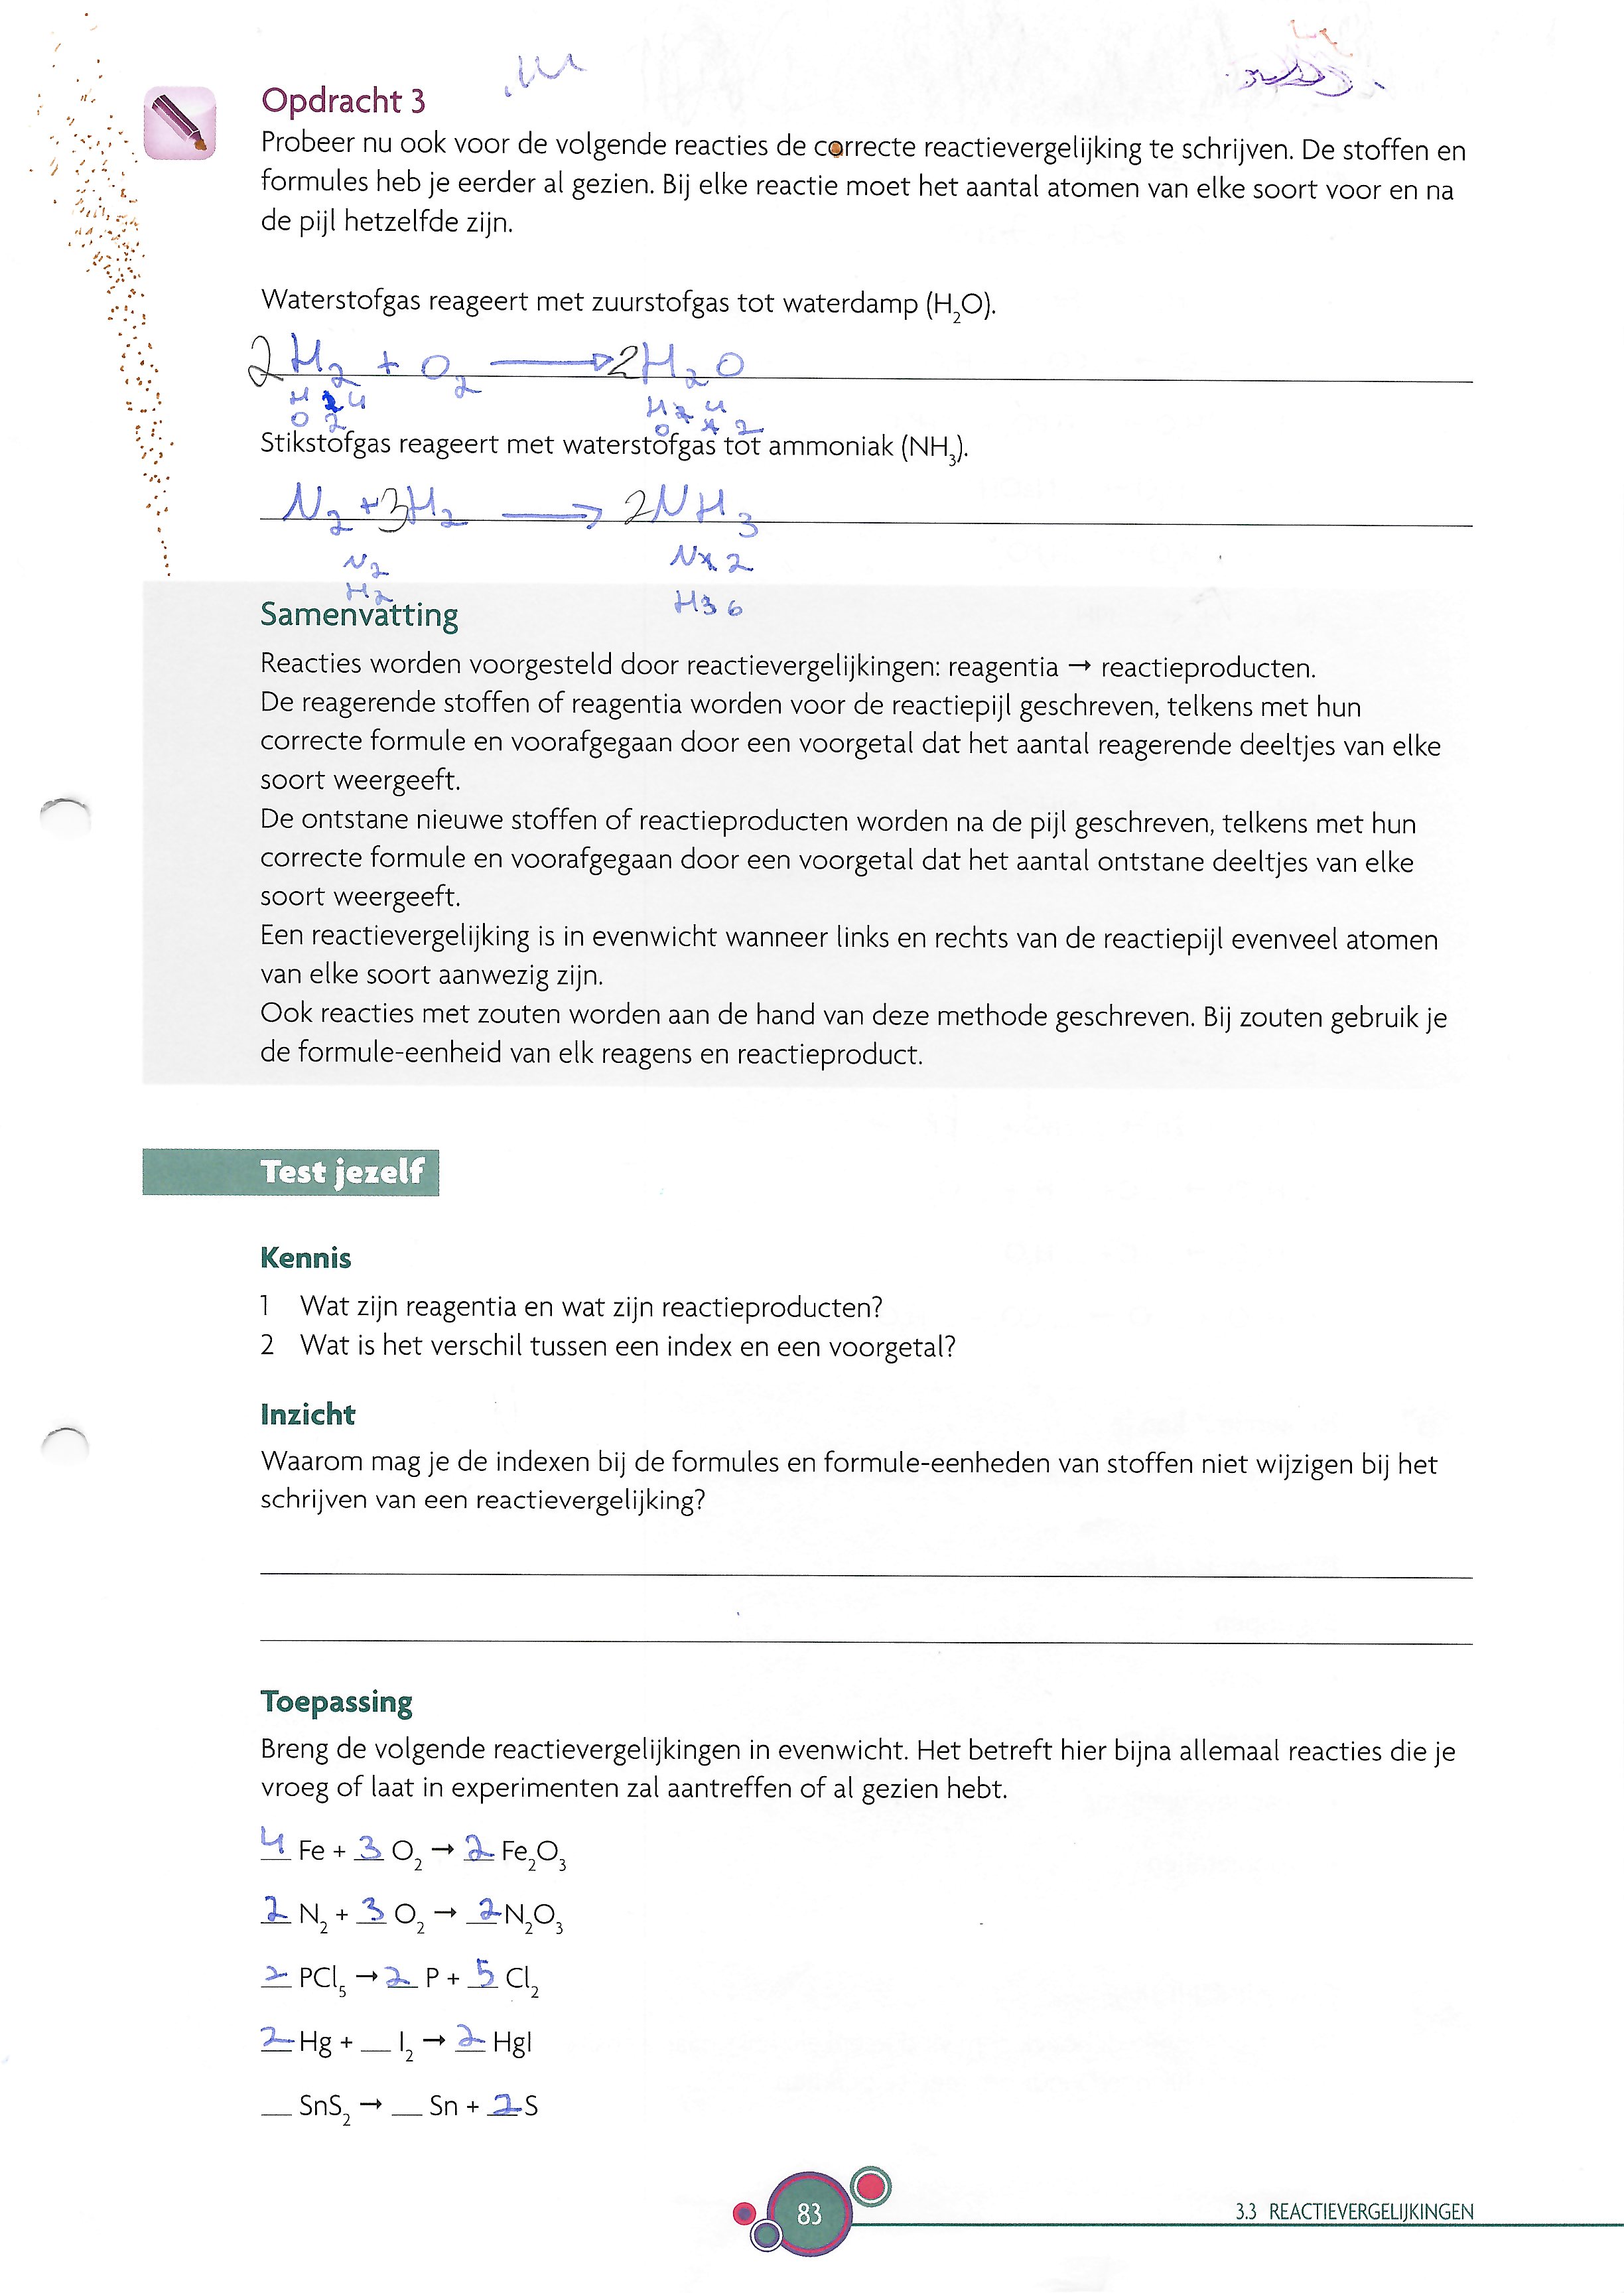 Opdracht 3
Probeer nu ook voor de volgende reacties de correcte reactievergelijking te schrijven. De stoffen en
formules heb je eerder al gezien. Bij elke reactie moet het aantal atomen van elke soort voor en na
de pijl hetzelfde zijn.
Waterstofgas reageert met zuurstofgas tot waterdamp (H₂O).
2H₂ + O₂ → 2H₂O
H 2 4 H 2 4
O 2 O 1 2
Stikstofgas reageert met waterstofgas tot ammoniak (NH₃).
N₂ + 3H₂ → 2NH₃
N 2 N 1 2
H 2 H 3 6
Samenvatting
Reacties worden voorgesteld door reactievergelijkingen: reagentia → reactieproducten.
De reagerende stoffen of reagentia worden voor de reactiepijl geschreven, telkens met hun
correcte formule en voorafgegaan door een voorgetal dat het aantal reagerende deeltjes van elke
soort weergeeft.
De ontstane nieuwe stoffen of reactieproducten worden na de pijl geschreven, telkens met hun
correcte formule en voorafgegaan door een voorgetal dat het aantal ontstane deeltjes van elke
soort weergeeft.
Een reactievergelijking is in evenwicht wanneer links en rechts van de reactiepijl evenveel atomen
van elke soort aanwezig zijn.
Ook reacties met zouten worden aan de hand van deze methode geschreven. Bij zouten gebruik je
de formule-eenheid van elk reagens en reactieproduct.
Test jezelf
Kennis
1 Wat zijn reagentia en wat zijn reactieproducten?
2 Wat is het verschil tussen een index en een voorgetal?
Inzicht
Waarom mag je de indexen bij de formules en formule-eenheden van stoffen niet wijzigen bij het
schrijven van een reactievergelijking?
Toepassing
Breng de volgende reactievergelijkingen in evenwicht. Het betreft hier bijna allemaal reacties die je
vroeg of laat in experimenten zal aantreffen of al gezien hebt.
4 Fe + 3 O₂ → 2 Fe₂O₃
2 N₂ + 3 O₂ → 2 N₂O₃
2 PCl₅ → 2 P + 5 Cl₂
2 Hg + __ I₂ → 2 HgI
__ SnS₂ → __ Sn + 2 S
83
3.3 REACTIEVERGELIJKINGEN